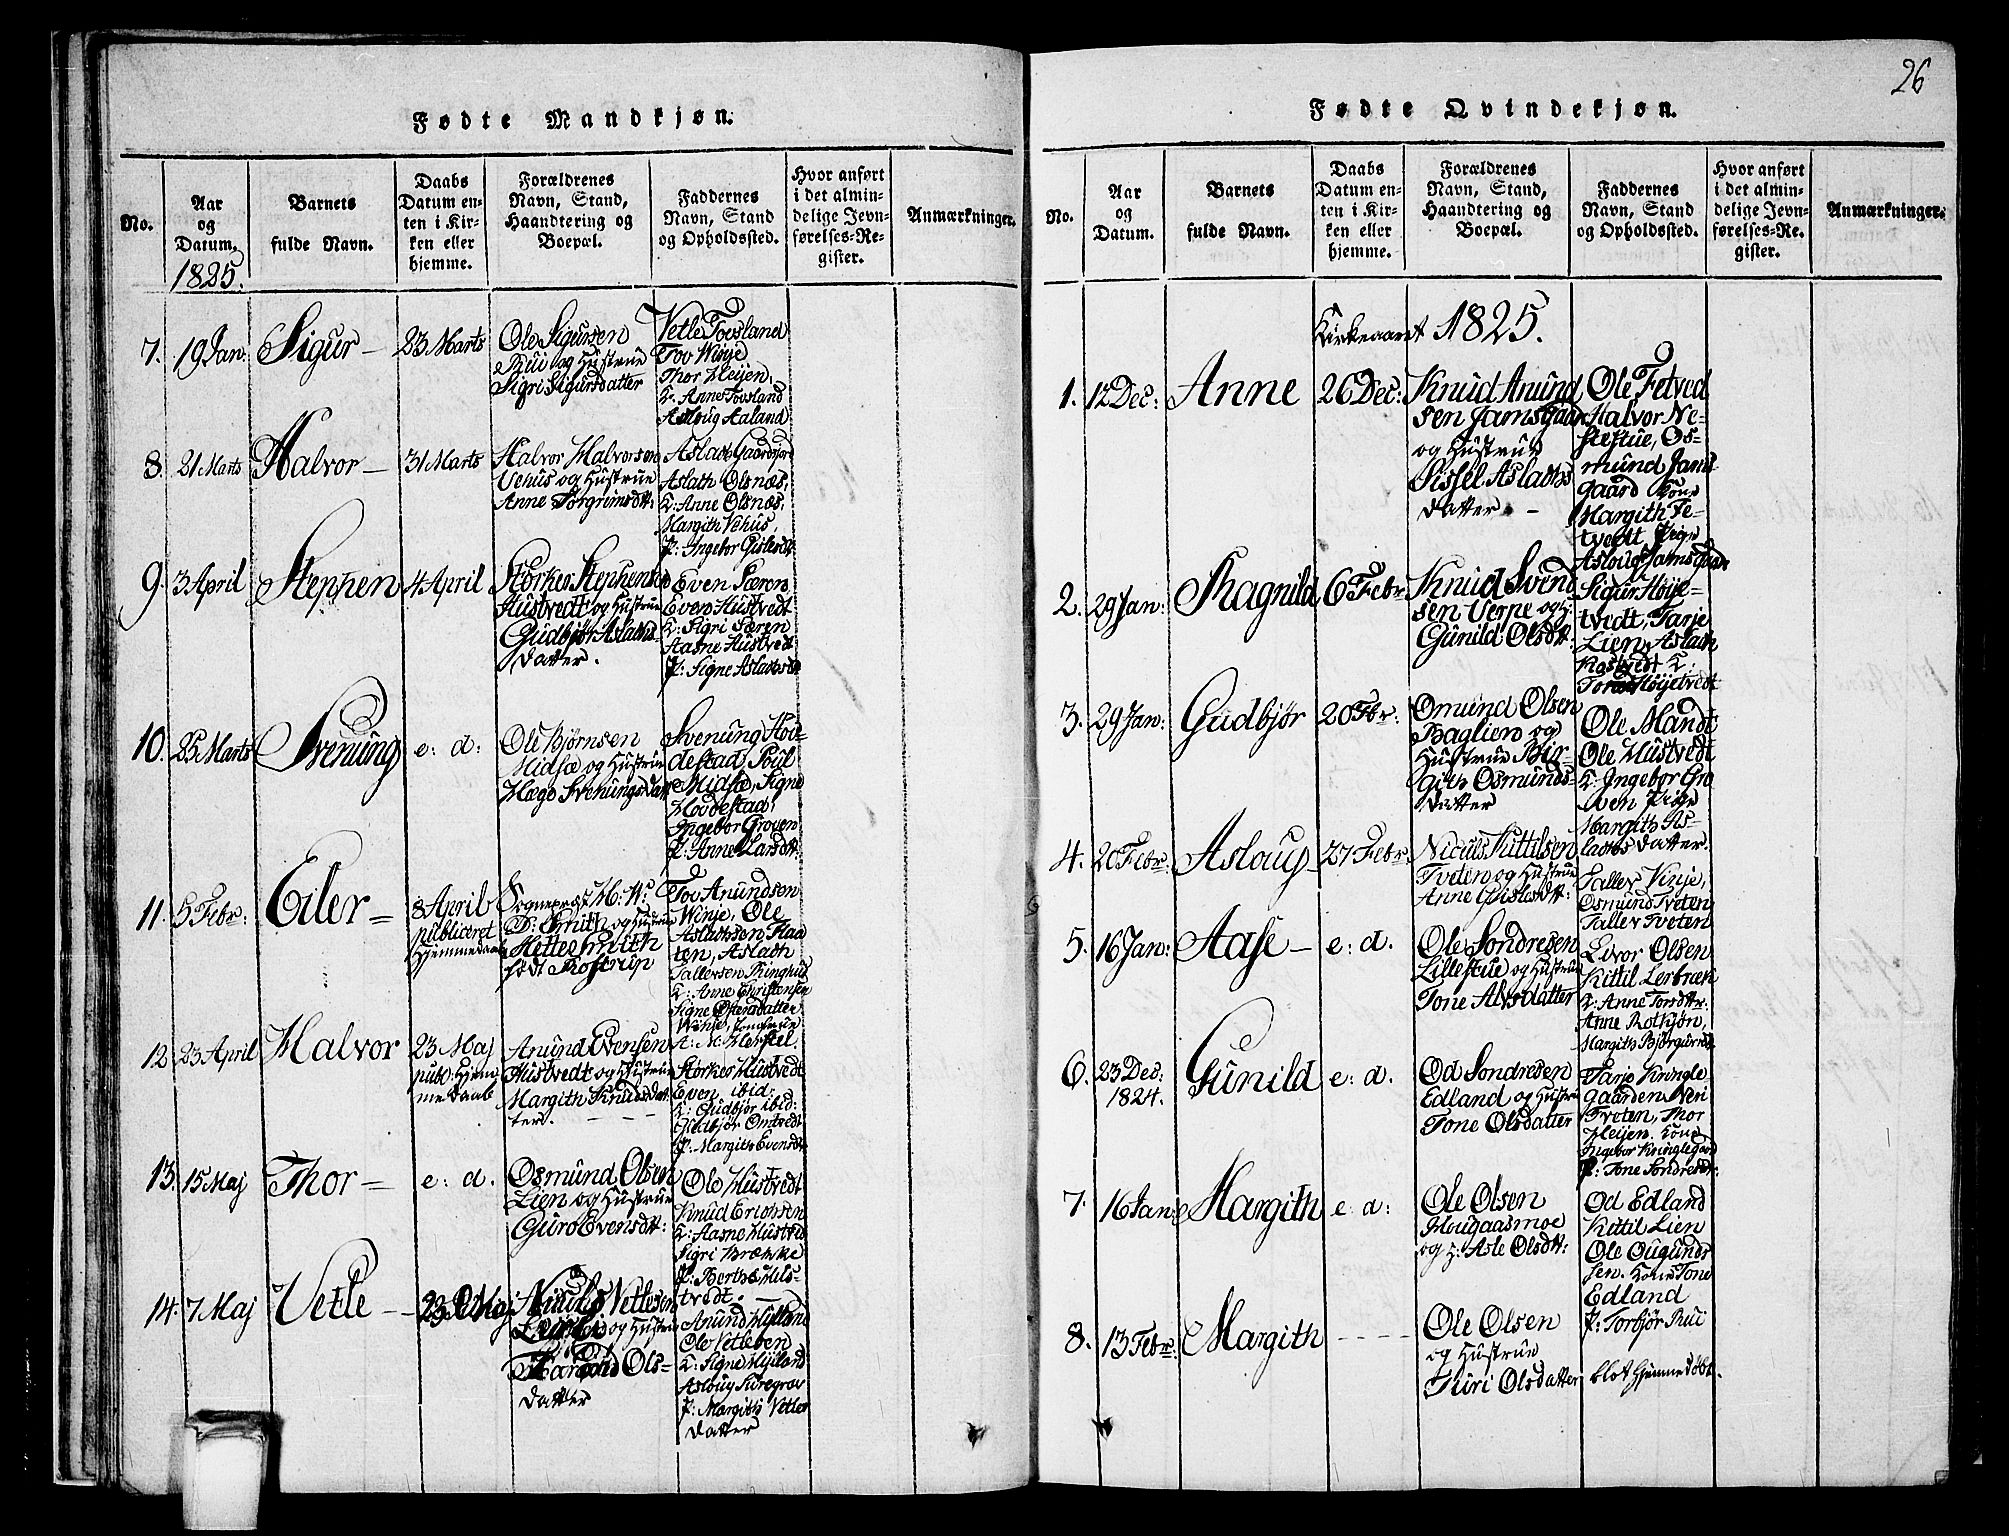 26
Fødte Mandkjøn.
No.
Aar
og
Datum.
1825.
Barnets
fulde Navn.
Daabs
Datum en-
ten i Kir-
ken eller
hjemme.
Forældrenes
Navn, Stand,
Haandtering og
Boepæl.
Faddernes
Navn, Stand
og Opholdssted.
Hvor anført
i det almin-
delige Jevn-
førelses-Re-
gister.
Anmærkninger.
7. 19 Jan: Sigur — 23 Marts
Ole Sigursen
Rui og Hustrue
Sigri Sigursdatter
Vetle Tovsland
Tov Winje
Thor Heijen,
K: Anne Tovsland
Asloug Aaland
8. 21 Marts Halvor — 31 Marts
Halvor Halvorsen
Vehus og Hustrue
Anne Torgrimsdtr:
Aslath Gaardsjord
Aslath Olsnæs,
K: Anne Olsnæs,
Margith Vehus,
P: Ingebor Gislesdtr
9. 3 April Stephen 4 April
Storker Stephensen
Hustvedt og Hustrue
Gudbjør Aslaths-
datter.
Even Særen
Even Hustvedt
K: Sigri Særen
Aasne Hustvedt
P: Signe Aslathsdr
10. 25 Marts Svenung e: d:
Ole Bjørnsen
Midsæ og Hustrue
Hæge Svenungsdatr
Svenung Hov-
destad, Poul
Midsæ, Signe
Hovdestad,
Ingebor Groven
P: Anne Larsdtr:
11. 5 Febr: Eiler — 8 April
publiceret
Hjemmedaab
Sognepræst H: Wr
F: Smith og Hustrue
Mette Smith
født Rostrup
Tov Anundsen
Winje, Ole
Aslathsen Haa
ten, Aslath
Tallevsen Ringhus
K: Anne Christensen
Signe Olfersdatter
Winje, Jomfrue
A: M: Herstel
12 23 April Halvor 23 Maj
publ: Hjem
medaab
Anund Evensen
Hustvedt og Hustrue
Margith Knudsdat
ter.
Storker Hustvedt
Even ibid:
K: Gudbjør ibid:
Gudbjør Omtvedt
P: Margith Evensdtr
13. 15 Maj Thor — e: d.
Osmund Olsen
Lien og Hustrue
Guro Evensdtr:
Ole Hustvedt
Knud Erichsen
K: Aasne Hustvedt
Sigri Brække
P: Berthe Mils-
tvedt.
14. 7 Maj Vetle — 23 Maj
Vetlesen
og Hustrue
Ols-
datter
Anund Hylland
Ole Vetlesen
K: Signe Hylland
Asloug Suregrav
P: Margith Vetles
datter
Fødte Qvindekjøn.
No.
Aar
og
Datum.
Barnets
fulde Navn.
Daabs
Datum en-
ten i Kir-
ken eller
hjemme.
Forældrenes
Navn, Stand,
Haandtering og
Boepæl.
Faddernes
Navn, Stand
og Opholdssted.
Hvor anført
i det almin-
delige Jevn-
førelses-Re-
gister.
Anmærkninger.
Kirkeaaret 1825.
1. 12 Dec: Anne 26 Dec:
Knud Anund
sen Jamsgaar
og Hustrue
Sissel Aslaths
datter —
Ole Fetved
Halvor Ne-
stestue, Os-
mund Jams
gaard Kone
Margith Fe-
tvedt Pige
Asloug Jamsgaar
2. 29 Jan: Ragnild 6 Febr
Knud Svend
sen Verpe og H:
Gunild Olsdtr:
Sigur Höije-
tvedt, Tarje
Lien, Aslath
Rostvedt K:
Tone Höijetvedt
3. 29 Jan: Gudbjør 20 Febr:
Omund Olsen
Baglien og
Hustrue Bir-
gith Osmunds-
datter
Ole Mandt
Ole Hustvedt
K: Ingebor Gro
ven Pige
Margith As-
lathsdatter.
4. 20 Febr: Asloug 27 Febr
Niculs Kittilsen
Tveten og Hustrue
Anne Gislesdtr:
Tallev Vinje,
Osmund Tveten
Tallev Tveten
5. 16 Jan: Aase — e: d.
Ole Sondresen
Lillestue og Hustrue
Tone Alvsdatter
Eivor Olsen
Kittil Lerbræk
K: Anne Torsdtr:
Anne Rotkjøn,
Margith Björgursdtr
6. 23 Dec:
1824. Gunild e: d.
Od Sondresen
Edland og Hustrue
Tone Olsdatter
Tarje Kringle
gaarden, Neri
Tveten, Thor
Heijen. Kone
Ingebor Kringlegaar
P: Tone Sondresdtr:
7. 16 Jan: Margith e: d:
Ole Olsen
Hougaasmoe
og H: Asle Olsdtr:
Od Edland
Kittil Lien
Ole Gugunds
sen. Kone Tone
Edland
P: Torbjør Rui
8. 13 Febr: Margith - - - -
Ole Olsen
og Hustrue
Kiri Olsdatter
blot hjemmedøbt.